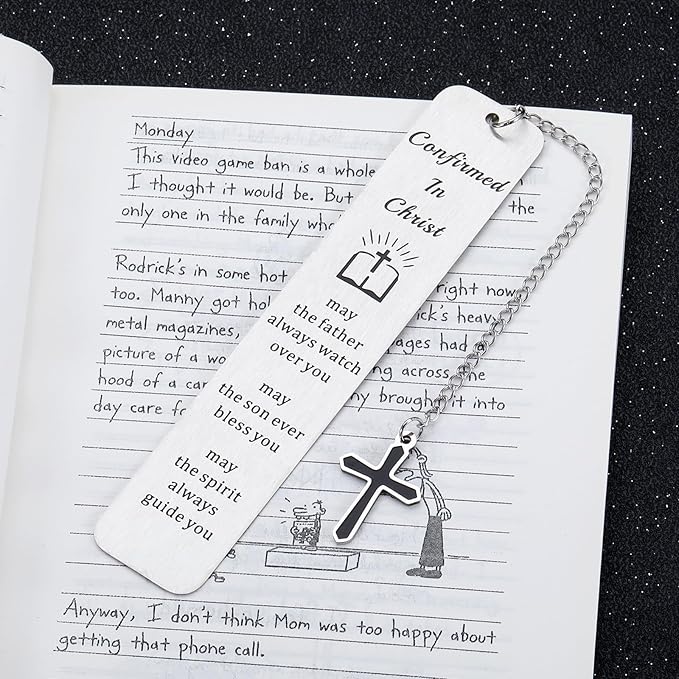 Confirmed
In
Christ
may
the father
always watch
over you
may
the son ever
bless you
may
the spirit
always
guide you
Monday
This video game ban is a whole
I thought it would be. But the
only one in the family who
Rodrick's in some hot right now
too. Manny got hol ick's heavy
metal magazines, ages had a
picture of a wo ng across the
hood of a car ny brought it into
day care fo
Anyway, I don't think Mom was too happy about
getting that phone call.